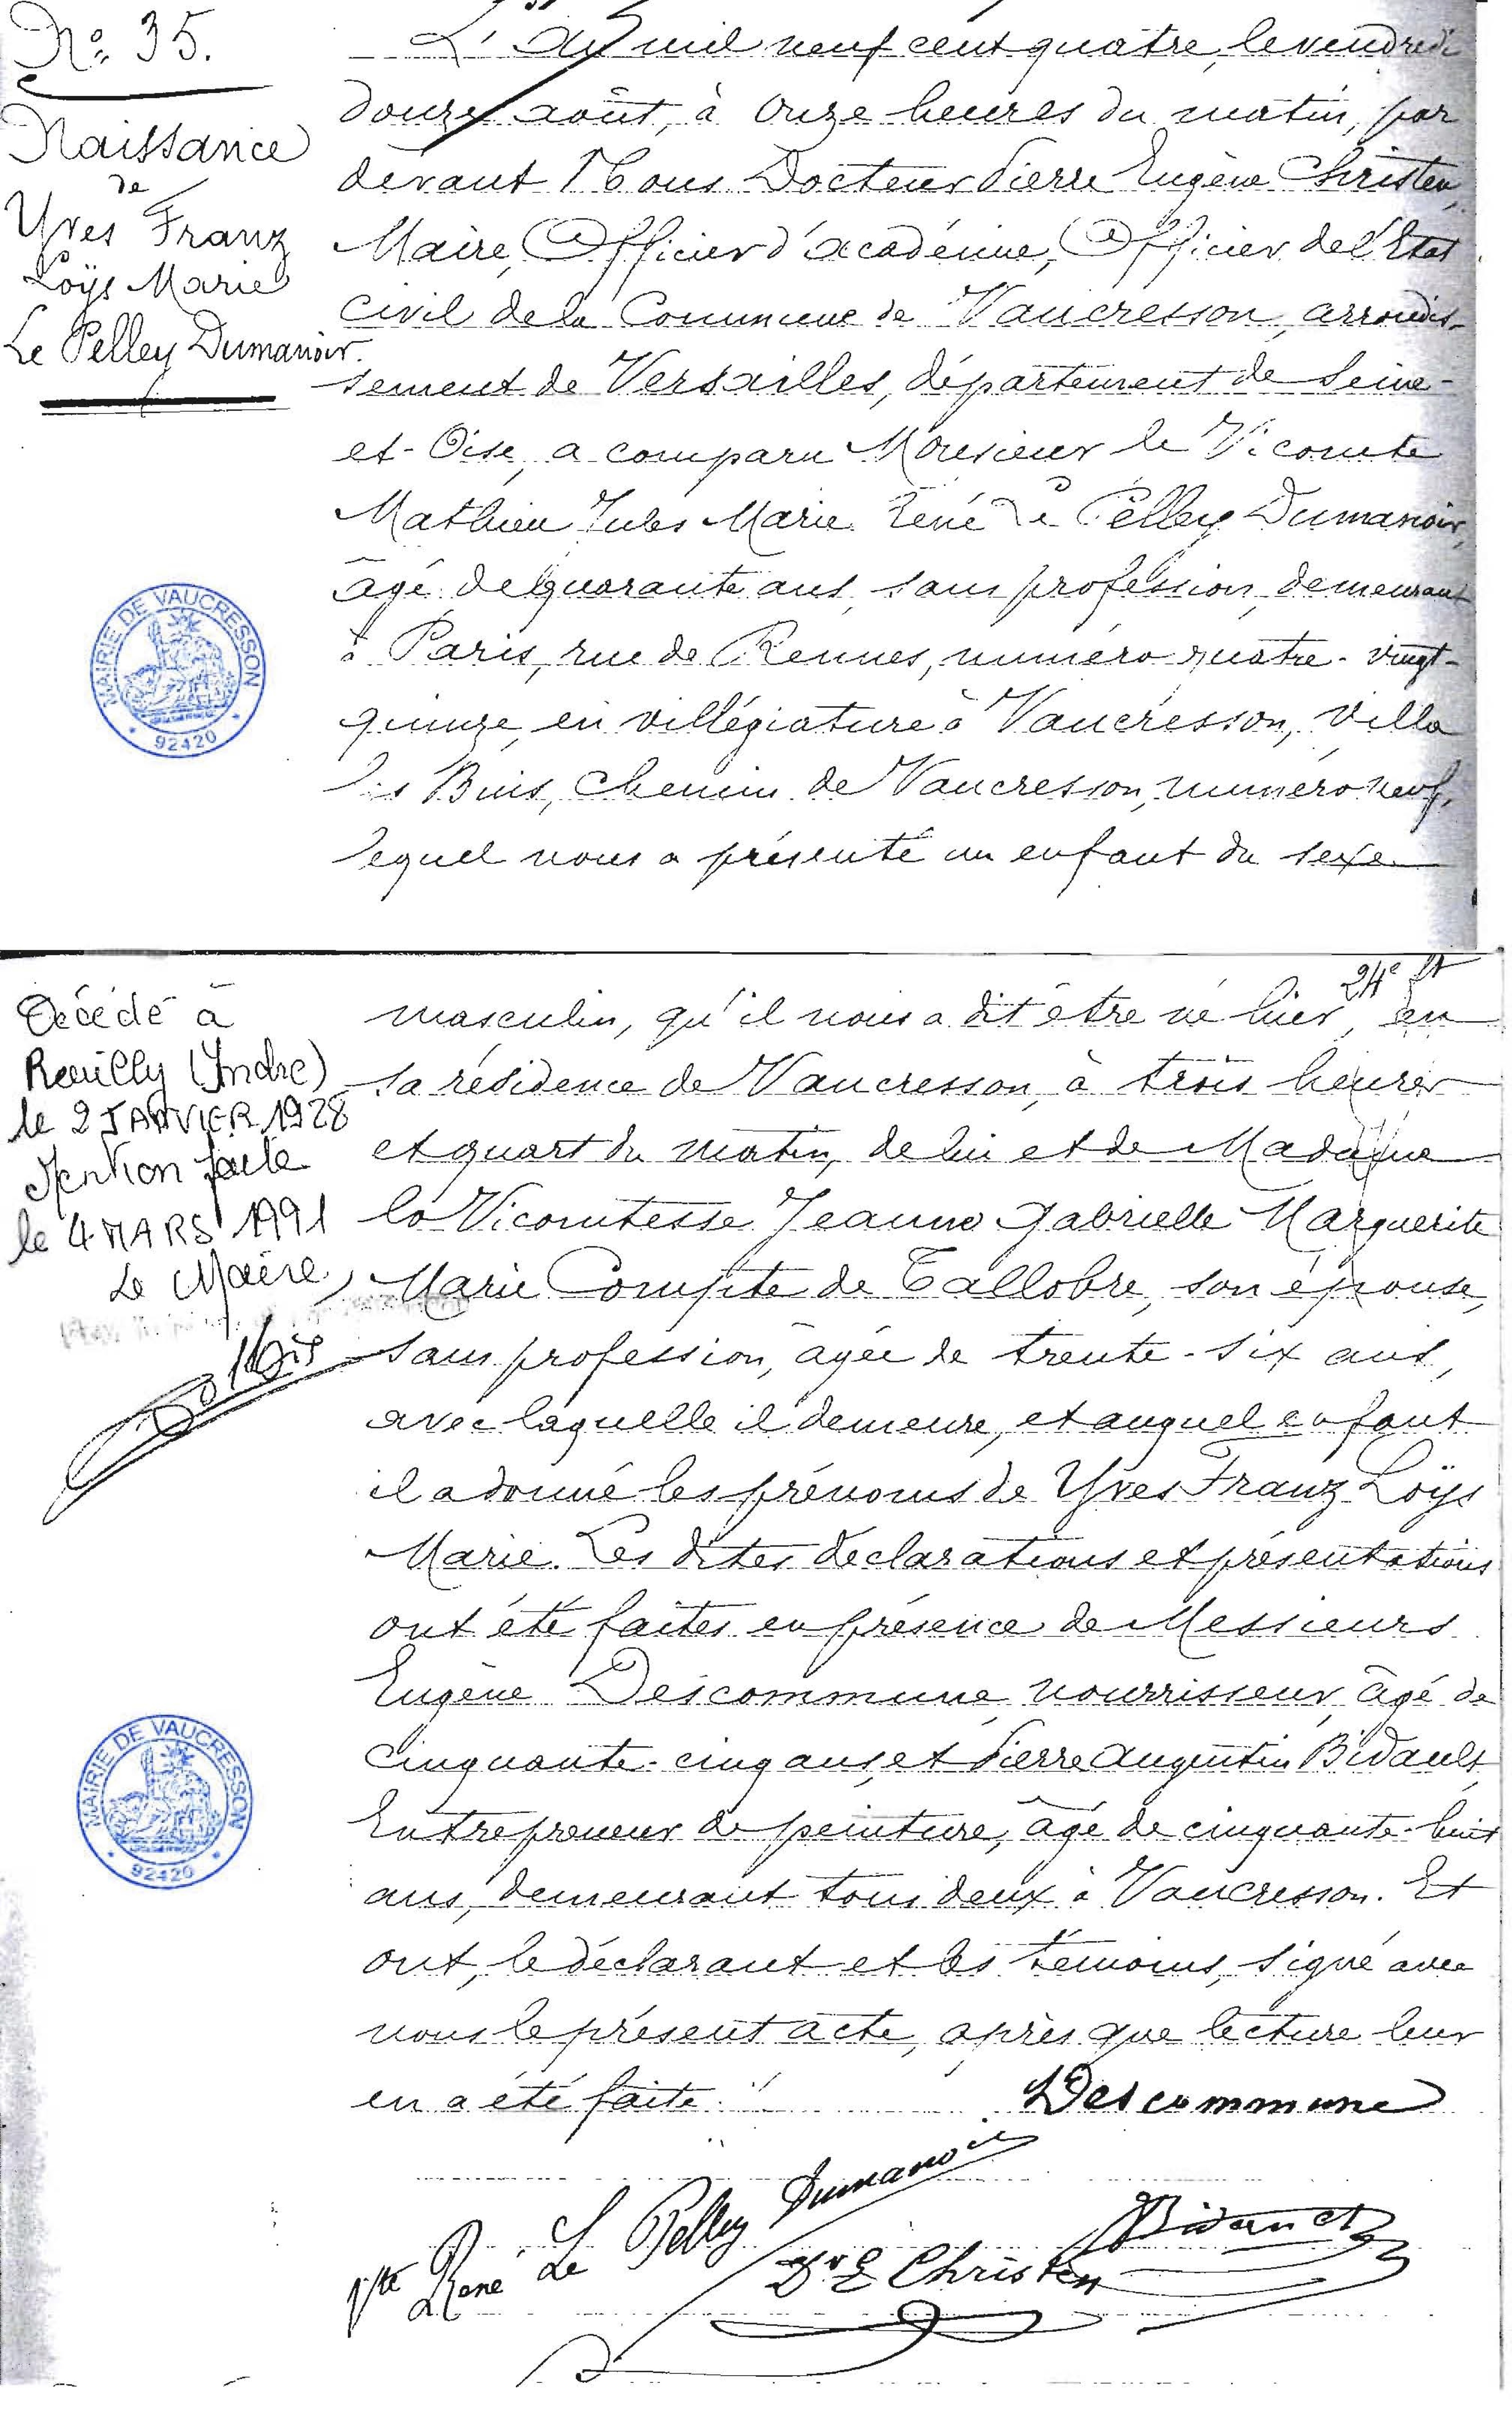 No. 35.
Naissance
de
Yves Franz
Loÿs Marie
Le Pelley Dumanoir.
L'an mil neuf cent quatre, le vendredi
douze août, à onze heures du matin, par
devant Nous Docteur Pierre Eugène Christen,
Maire, Officier d'académie, Officier de l'Etat
civil de la Commune de Vaucresson, arrondis-
sement de Versailles, département de Seine-
et-Oise, a comparu Monsieur le Vicomte
Mathieu Jules Marie René Le Pelley Dumanoir,
âgé de quarante ans, sans profession, demeurant
à Paris, rue de Rennes, numéro quatre-vingt-
quinze, en villégiature à Vaucresson, villa
les Buis, Chemin de Vaucresson, numéro neuf,
lequel nous a présenté un enfant du sexe
MAIRIE DE VAUCRESSON
92420
24e
masculin, qu'il nous a dit être né hier, en
sa résidence de Vaucresson, à trois heures
et quart du matin, de lui et de Madame
la Vicomtesse Jeanne Gabrielle Marguerite
Marie Compte de Tallobre, son épouse,
sans profession, âgée de trente-six ans,
avec laquelle il demeure, et auquel enfant
il a donné les prénoms de Yves Franz Loÿs
Marie. Les dites déclarations et présentations
ont été faites en présence de Messieurs
Eugène Descommune, nourrisseur, âgé de
cinquante-cinq ans, et Pierre Augustin Bidault,
Entrepreneur de peinture, âgé de cinquante-huit
ans, demeurant tous deux à Vaucresson. Et
ont, le déclarant et les témoins, signé avec
nous le présent acte, après que lecture leur
en a été faite.
Décédé à
Reuilly (Indre)
le 2 JANVIER 1928
Mention faite
le 4 MARS 1991
Le Maire,
MAIRIE DE VAUCRESSON
92420
Descommune
Vte René Le Pelley Dumanoir
Dr E Christen
Bidault